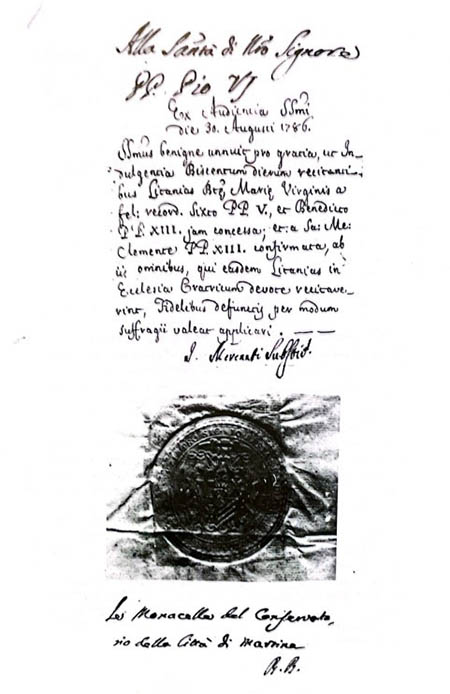 Alla Santà di Nro Signore
PP. Pio VI
Ex Audientia SSmi
die 30. Augusti 1786.
SSmus benigne annuit pro gratia, ut In-
dulgentia Biscentum dierum recitanti-
bus Litanias Btę Marię Virginis a
fel: record. Sixto PP V., et Benedicto
PP. XIII. jam concessa, et a Sa: Me:
Clemente PP. XIII. confirmata, ab
iis omnibus, qui easdem Litanias in
Ecclesia Oratricum devote recitave-
rint, Fidelibus defunctis per modum
suffragii valeat applicari.
Le Monacelle del Conservato,
rio della Città di Martina